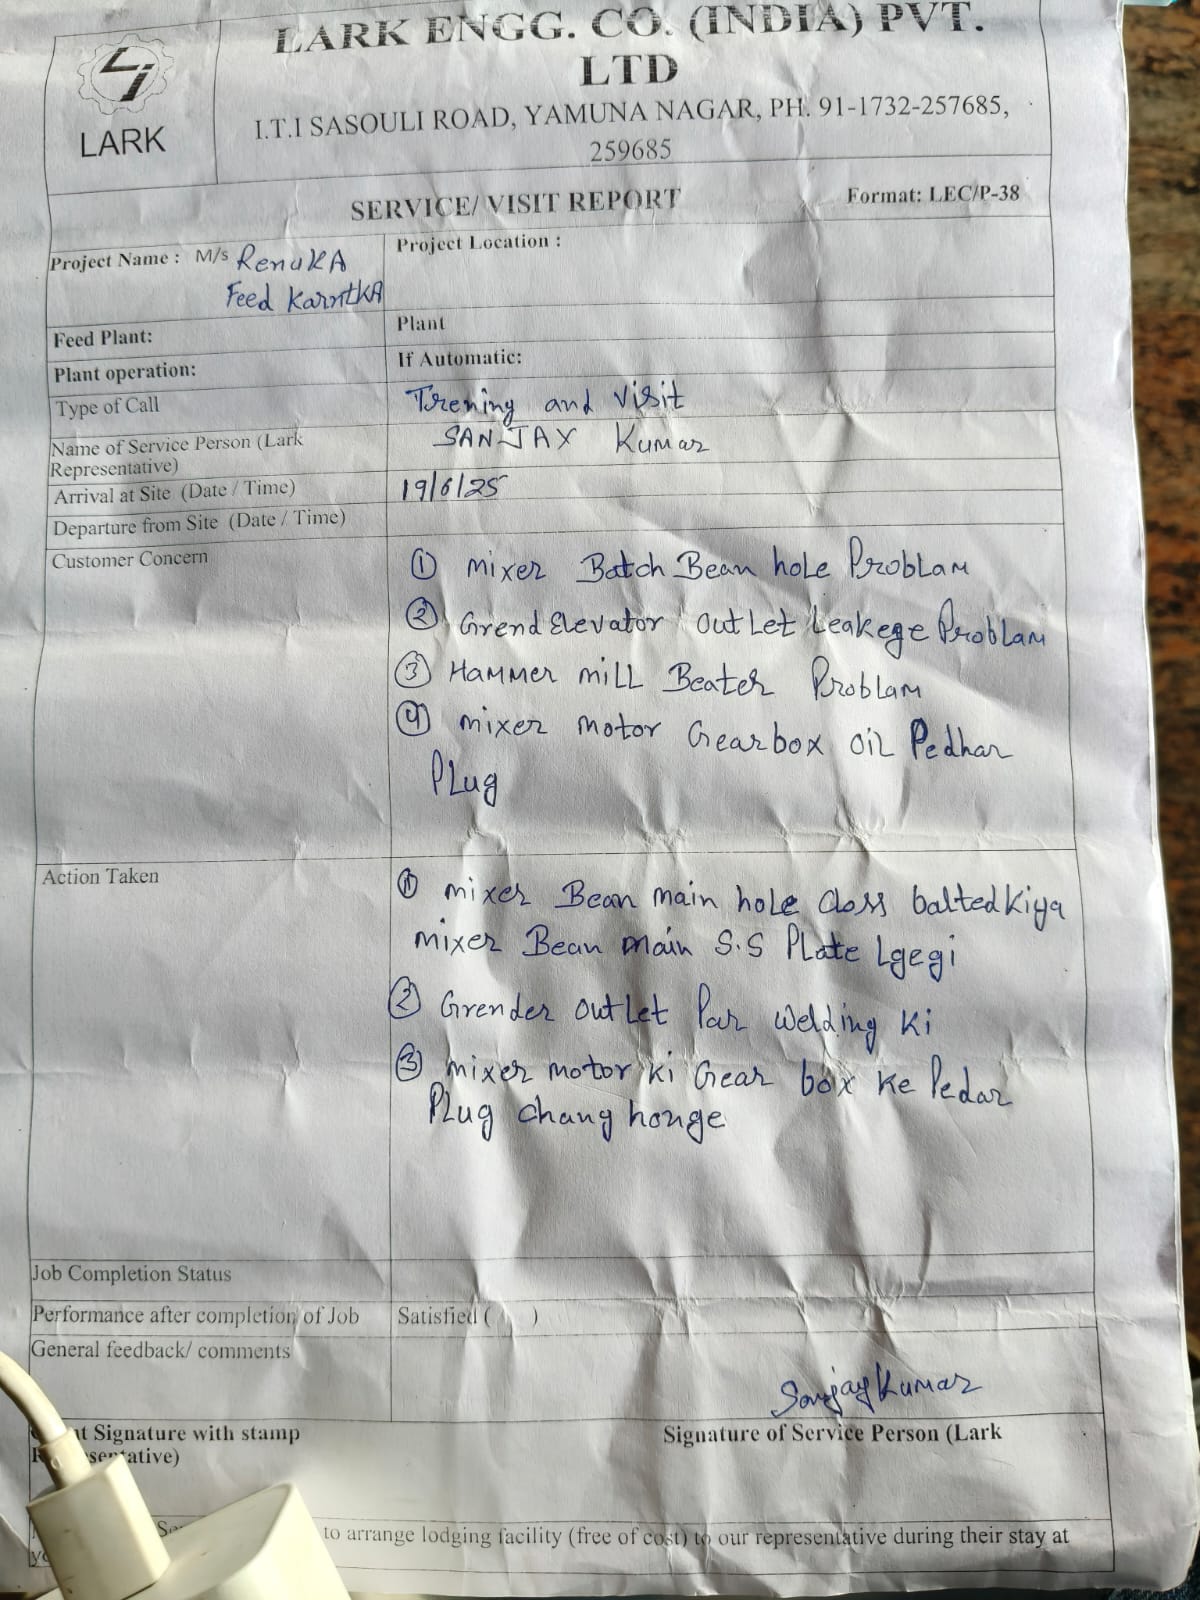 LARK
LARK ENGG. CO. (INDIA) PVT.
LTD
I.T.I SASOULI ROAD, YAMUNA NAGAR, PH. 91-1732-257685,
259685
SERVICE/ VISIT REPORT
Format: LEC/P-38
Project Name : M/s RenuKA
Feed KarntkA
Project Location :
Feed Plant:
Plant
Plant operation:
If Automatic:
Type of Call
Trening and visit
Name of Service Person (Lark
Representative)
SANJAY Kumar
Arrival at Site (Date / Time)
19/6/25
Departure from Site (Date / Time)
Customer Concern
① mixer Batch Bean hole Problam
② Grend Elevator outLet Leakege Problam
③ Hammer mill Beater Problam
④ mixer motor Gearbox oil Pedhar
Plug
Action Taken
① mixer Bean main hole closs balted Kiya
mixer Bean main S.S Plate Lgegi
② Grender outLet Par welding Ki
③ mixer motor ki Gear box ke Pedar
Plug chang honge
Job Completion Status
Performance after completion of Job
Satisfied ( )
General feedback/ comments
Sanjay Kumar
Signature with stamp
Signature of Service Person (Lark
to arrange lodging facility (free of cost) to our representative during their stay at